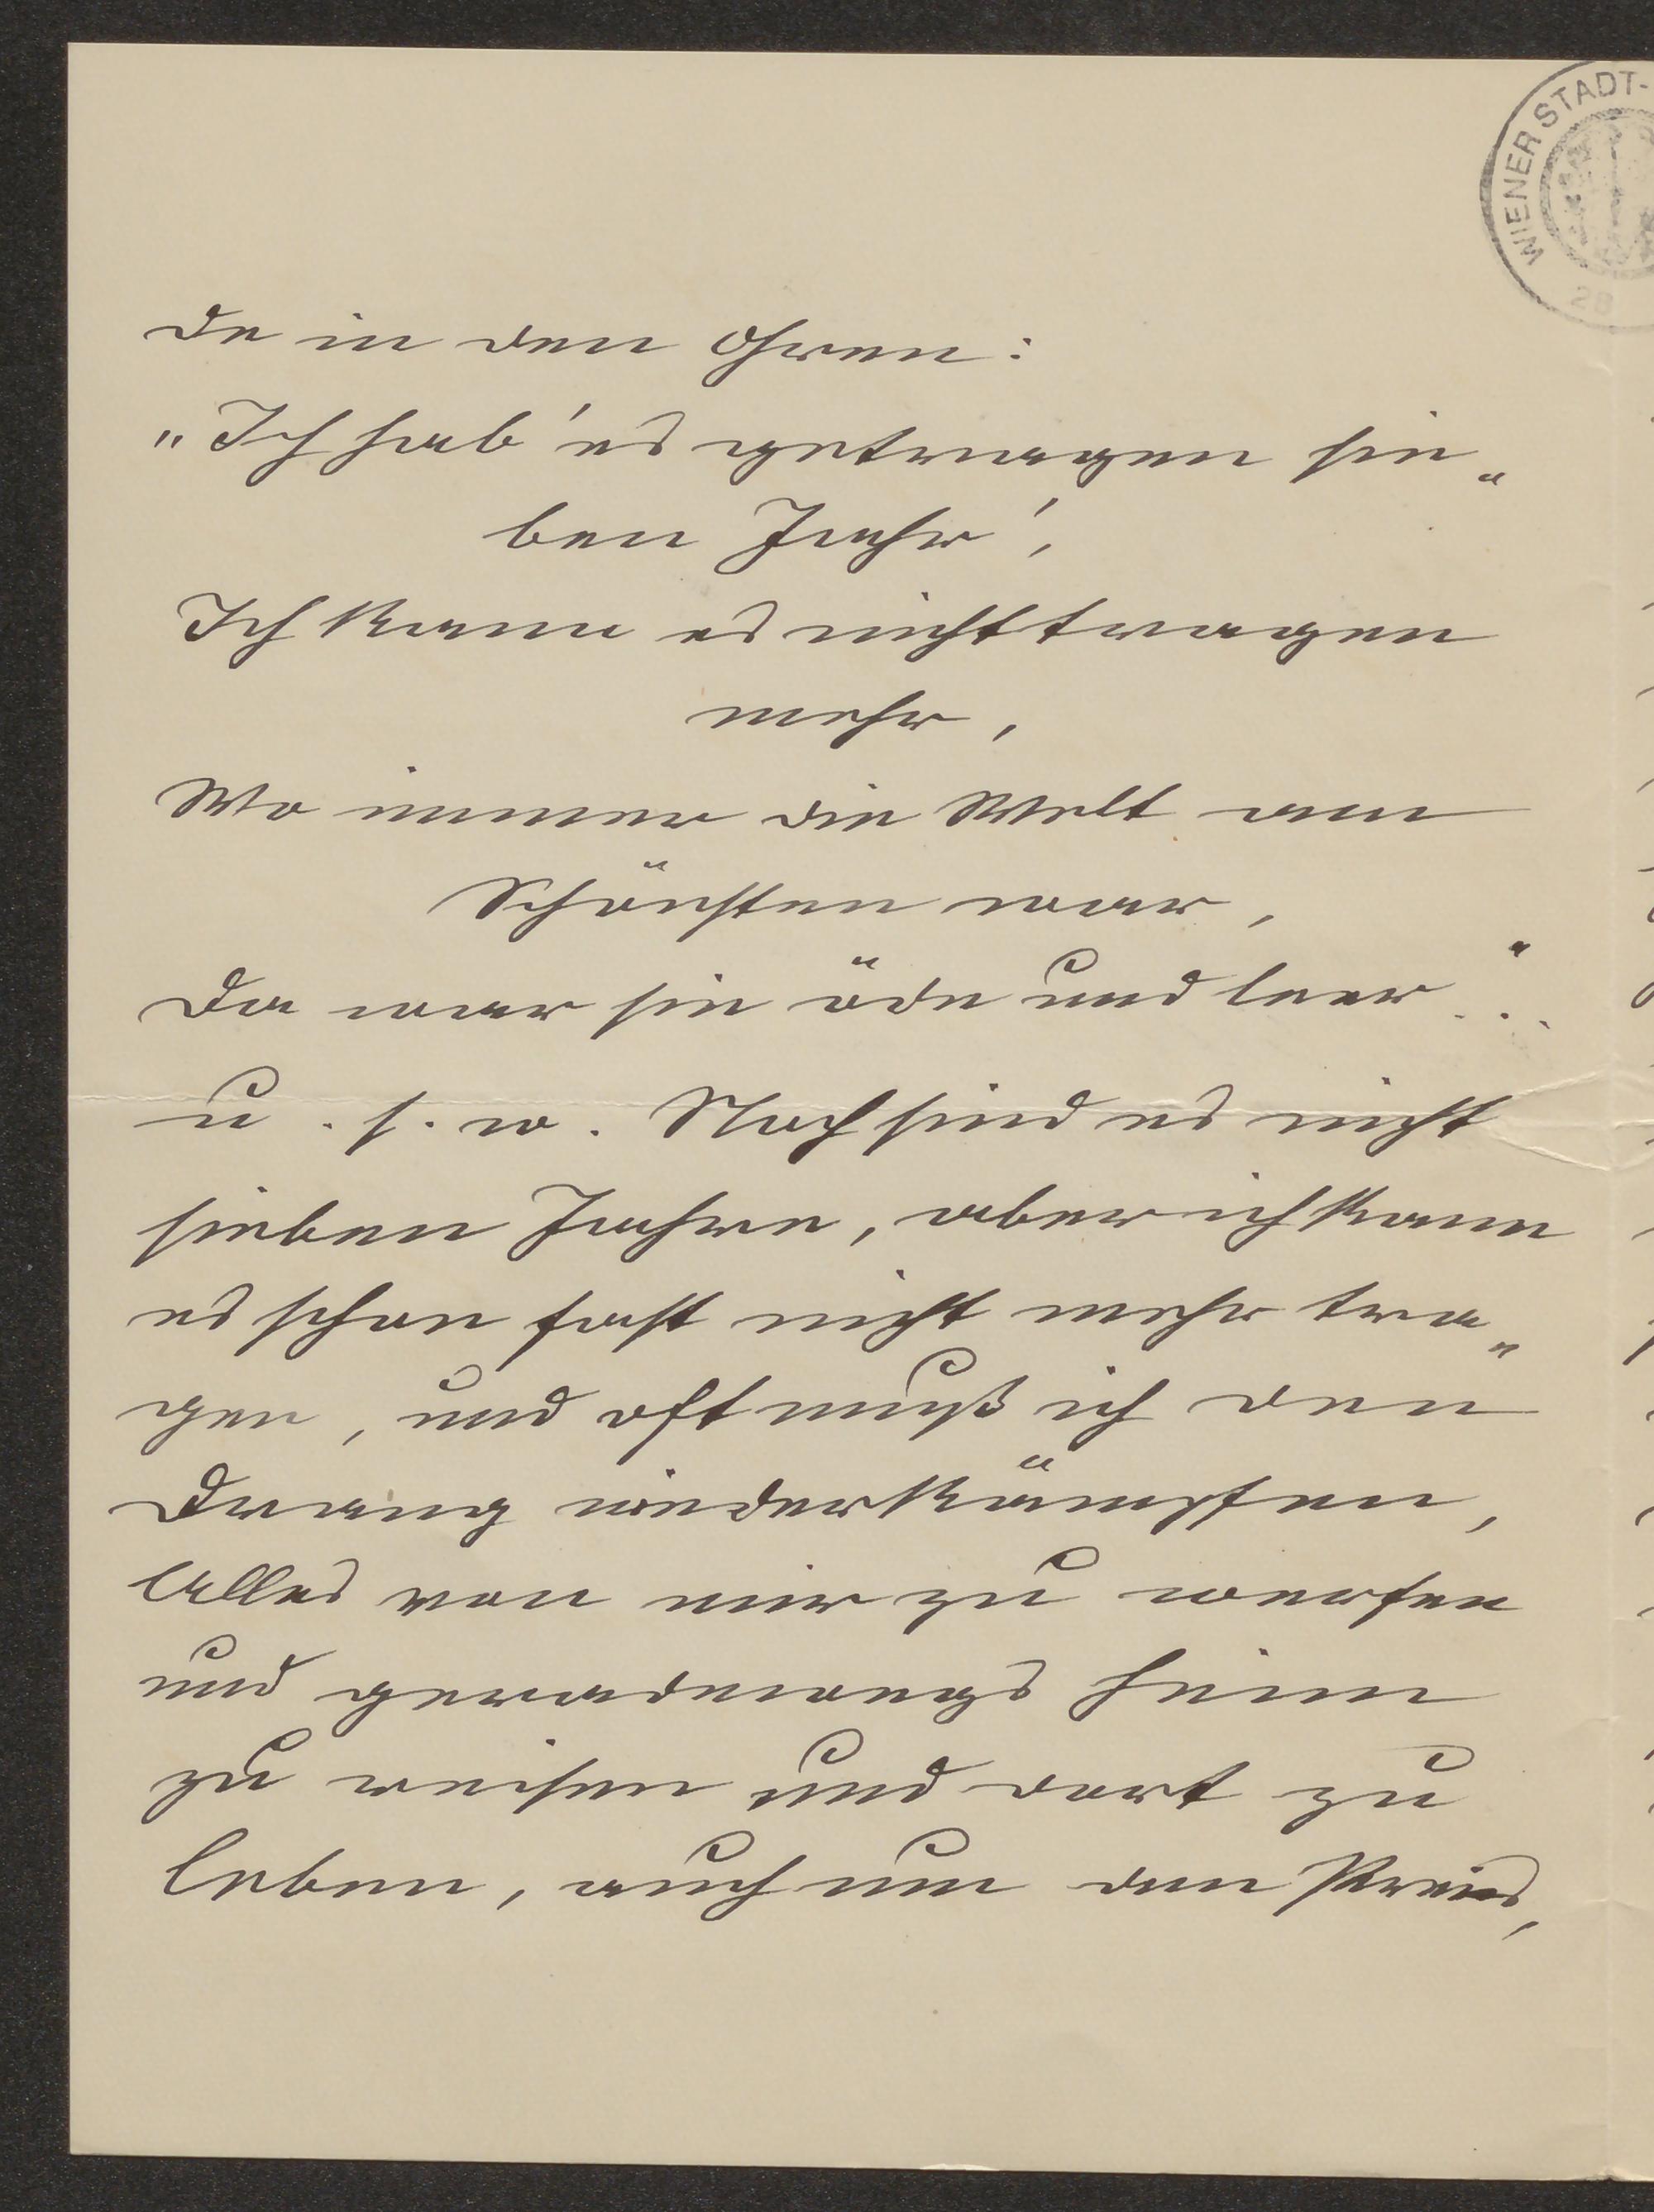 WIENER STADT-
28
de in den Ohren:
„Ich hab' es getragen sie„
ben Jahr',
Ich kann es nicht tragen
mehr,
Wo immer die Welt am
Schönsten war,
Da war sie öde und leer..."
u. s. w. Noch sind es nicht
sieben Jahre, aber ich kann
es schon fast nicht mehr tra„
gen, und oft muß ich den
Drang niederkämpfen,
Alles von mir zu werfen
und geradewegs heim
zu reisen und dort zu
leben, auch um den Preis,